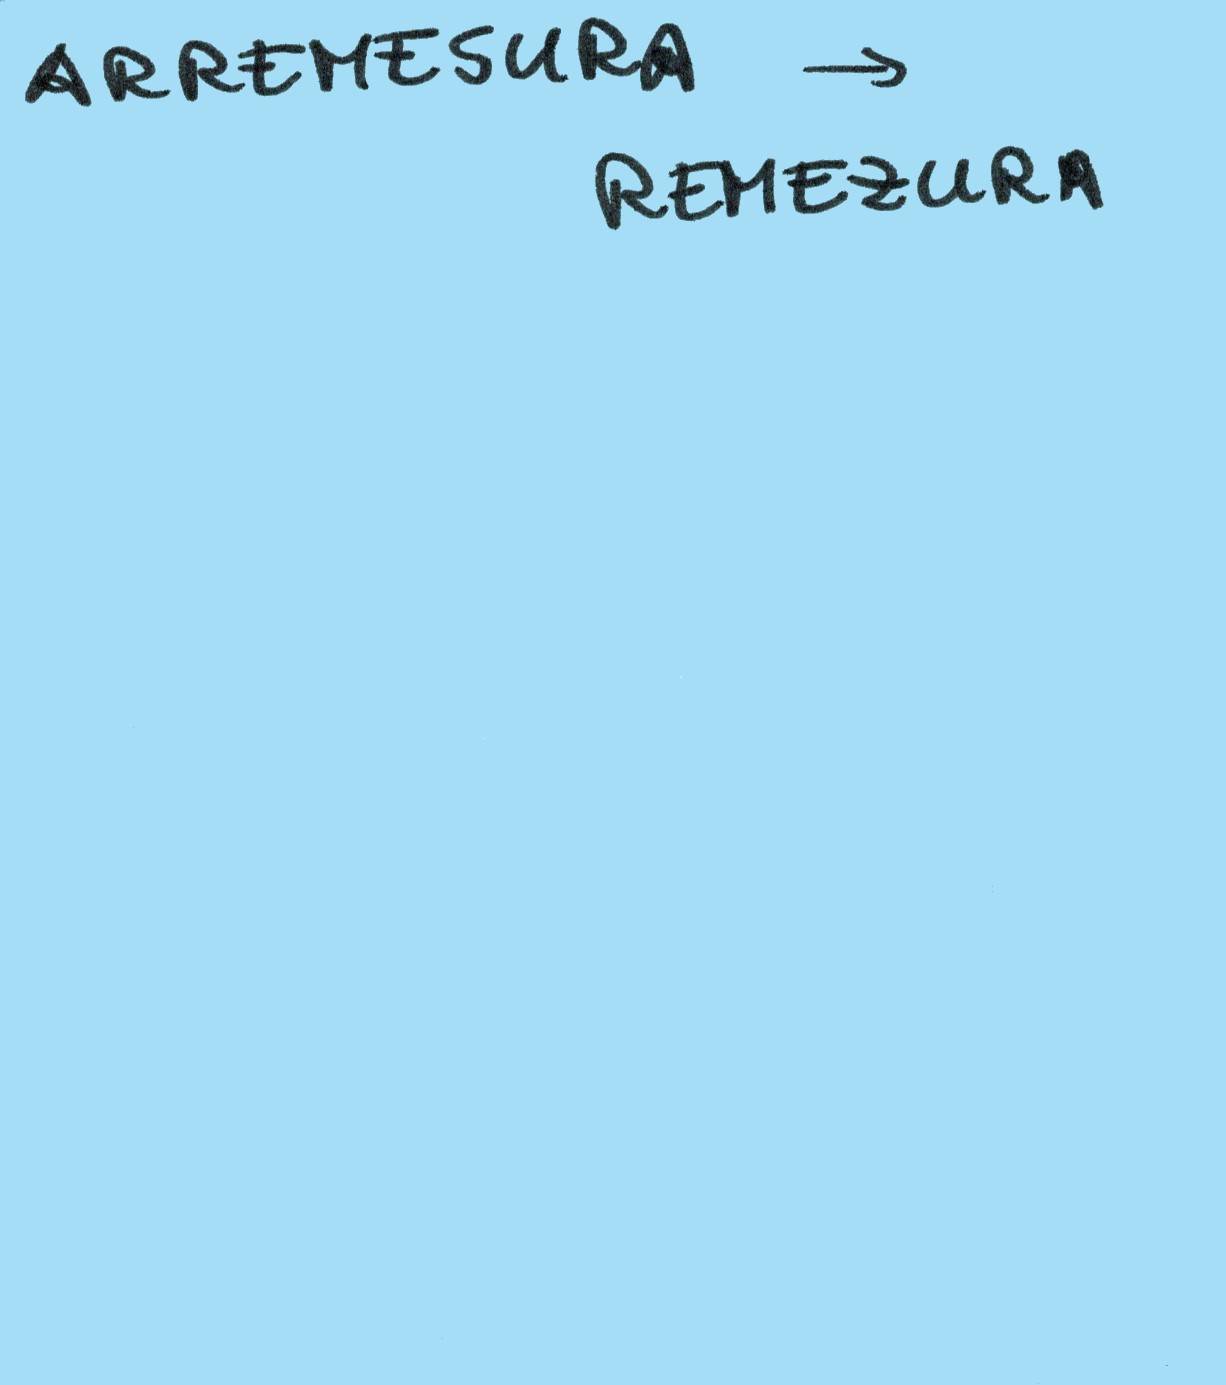 ARREMESURA →
REMEZURA